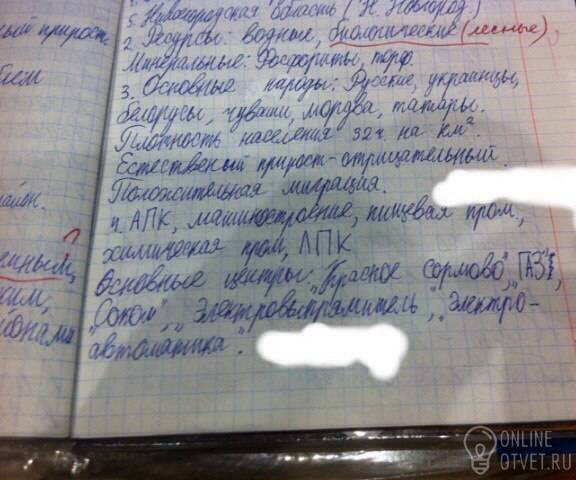 5. Новогородская область (Н. Новгород)
2. Ресурсы: водные, биологические (лесные),
Минеральные: Фосфориты, торф.
3. Основные народы: Русские, украинцы,
белорусы, чуваши, мордва, татары.
Плотность населения 32ч. на км².
Естественый прирост - отрицательный.
Положительная миграция.
4. АПК, машиностроение, пищевая пром.,
химическая пром, ЛПК
Основные центры: "Красное сормово", "ГАЗ",
"Сокол", "Электровыпрямитель", "Электро-
автоматика".
ый прирост
ONLINE
OTVET.RU